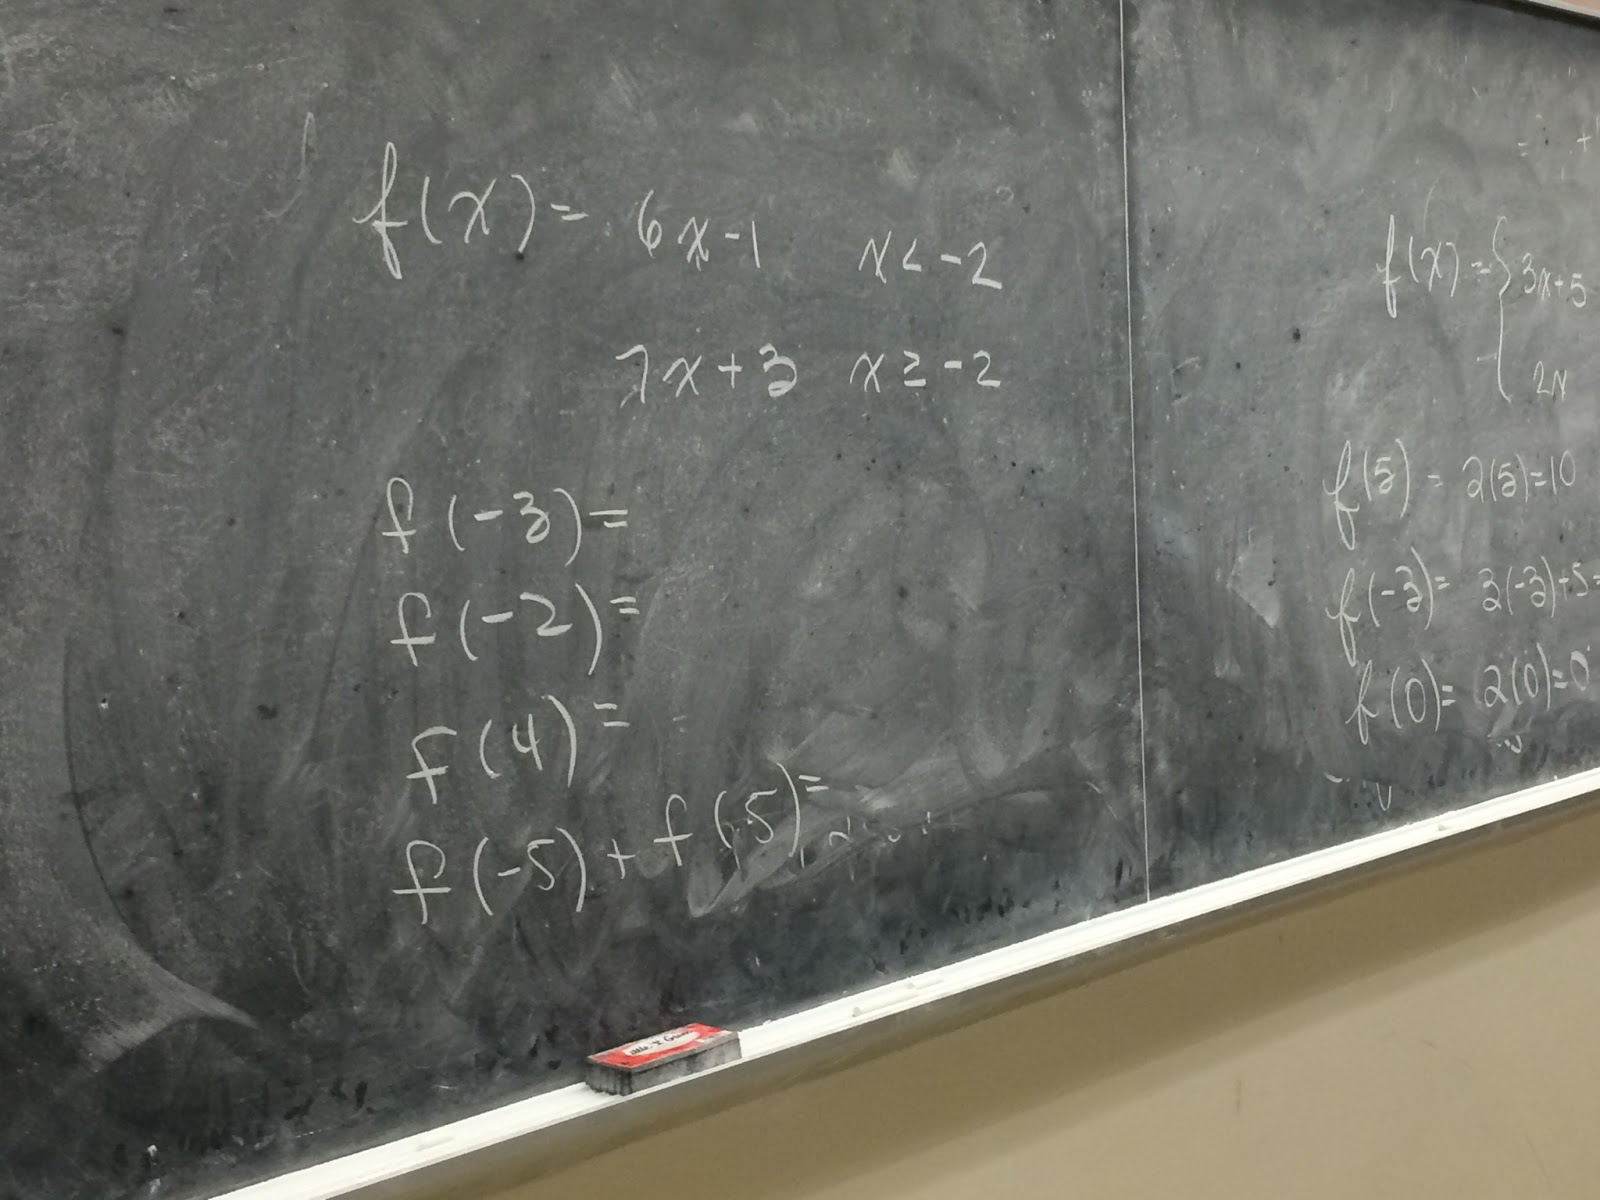 f(x) = 6x-1 x < -2
7x+3 x ≥ -2
f(-3)=
f(-2)=
f(4)=
f(-5)+f(5)=
= +
f(x) = { 3x+5
2x
f(5) = 2(5)=10
f(-3)= 3(-3)+5=
f(0)= 2(0)=0